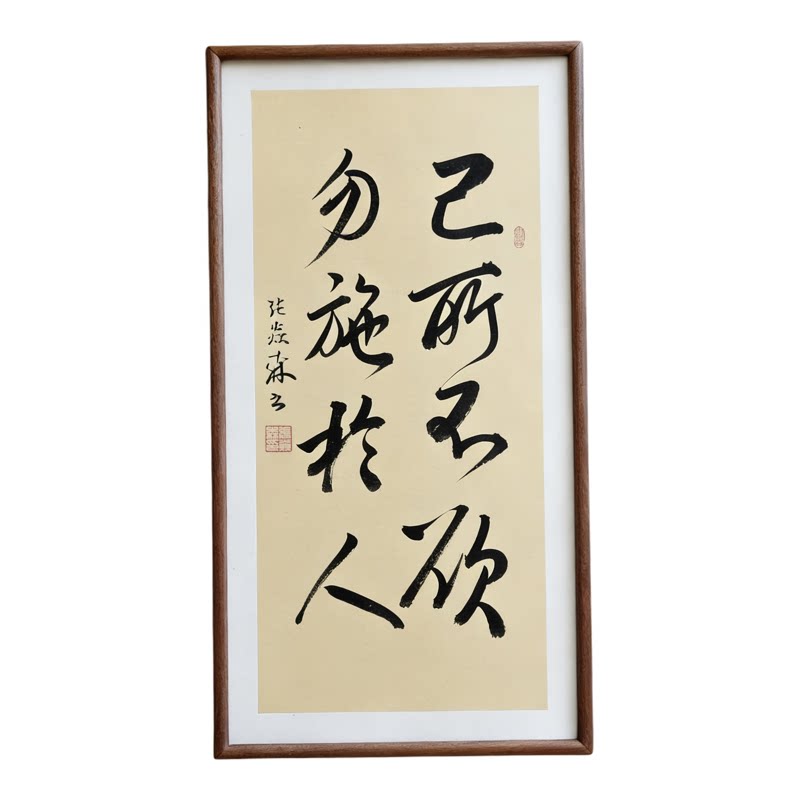 己所不欲
勿施於人
张焱森书